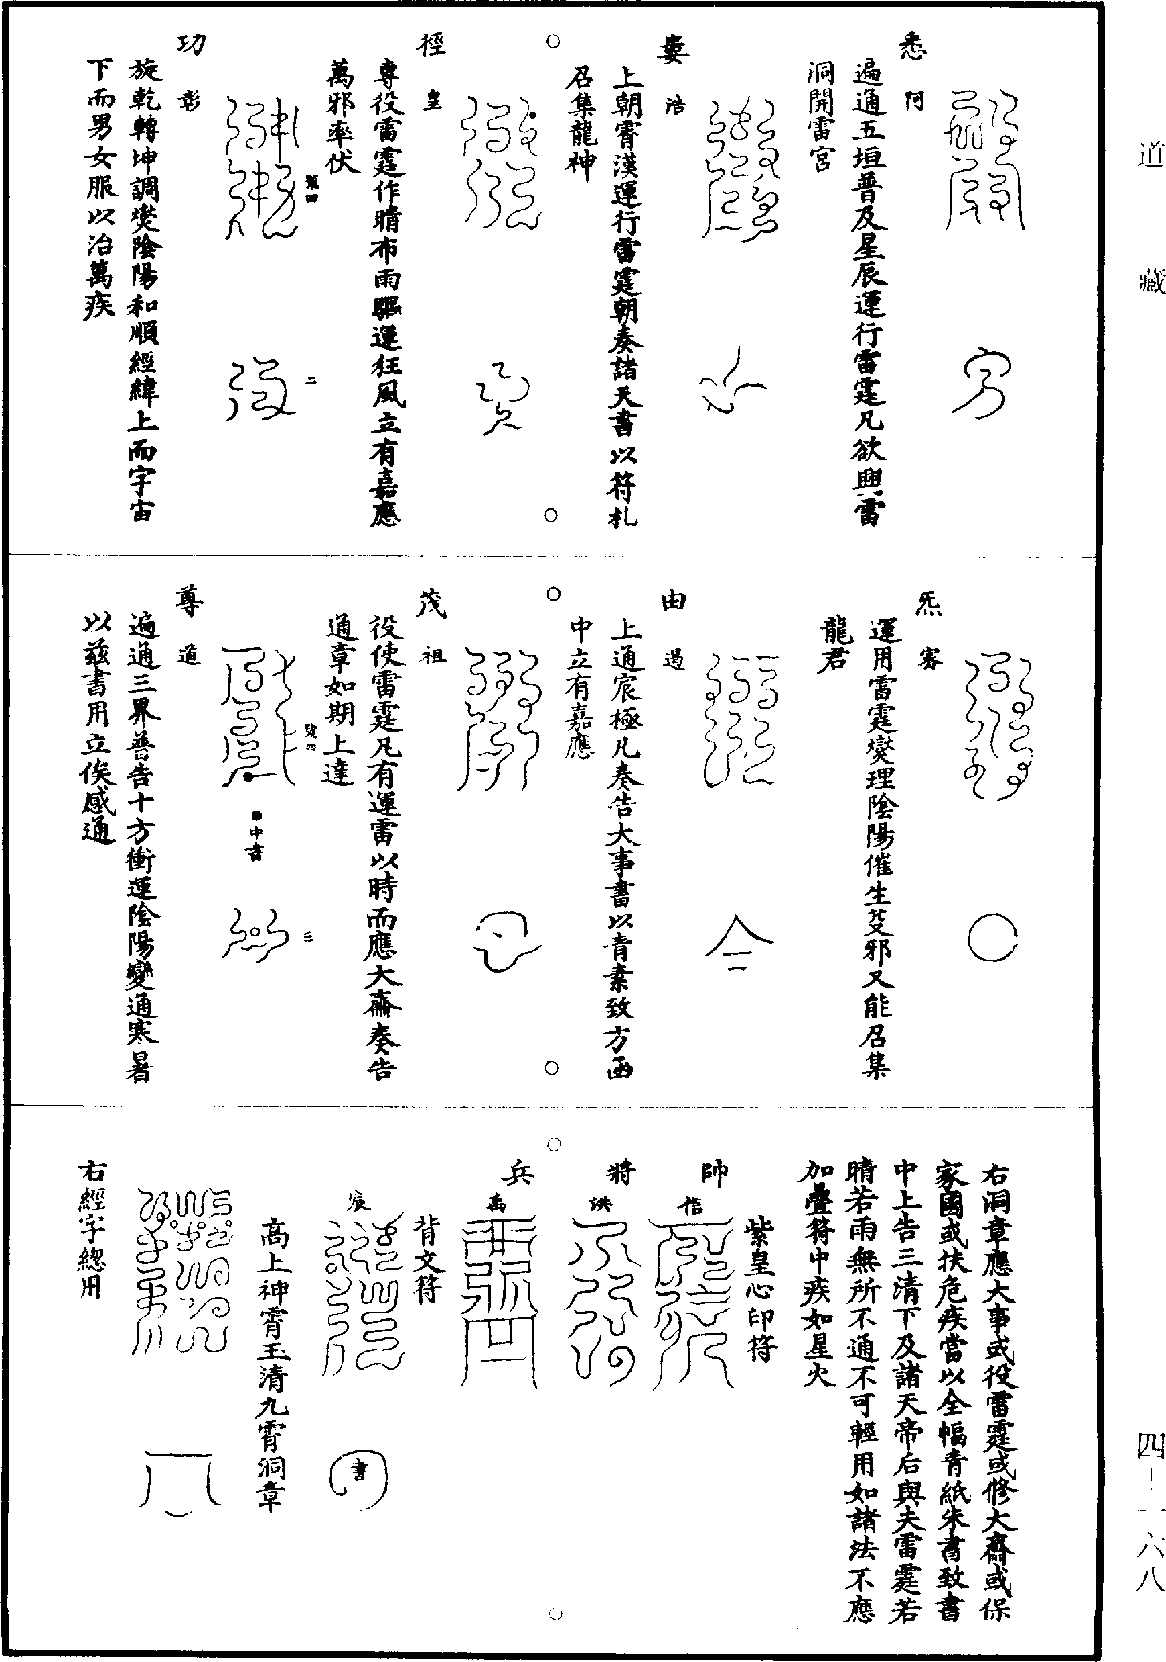 道藏
四-一六八
悉阿
遍通五垣普及星辰運行雷霆凡欲興雷
洞開雷宮
婁浩
上朝霄漢運行雷霆朝奏諸天書以符札
召集龍神
徑皇
專役雷霆作晴布雨驅運狂風立有嘉應
萬邪率伏
功彰
二
旋乾轉坤調爕陰陽和順經緯上而宇宙
下而男女服以治萬疾
炁
運用雷霆爕理陰陽催生芟邪又能召集
龍君
由過
上通宸極凡奏告大事書以青素致方函
中立有嘉應
茂祖
役使雷霆凡有運雷以時而應大齋奏告
通章如期上達
尊道
中書
三
遍通三界普告十方衝運陰陽變通寒暑
以茲書用立俟感通
右洞章應大事或役雷霆或修大齋或保
家國或扶危疾當以全幅青紙朱書致書
中上告三清下及諸天帝后與夫雷霆若
晴若雨無所不通不可輕用如諸法不應
加疊符中疾如星火
紫皇心印符
帥信
將洪
兵禹
背文符
宸
書
高上神霄玉清九霄洞章
右經字總用